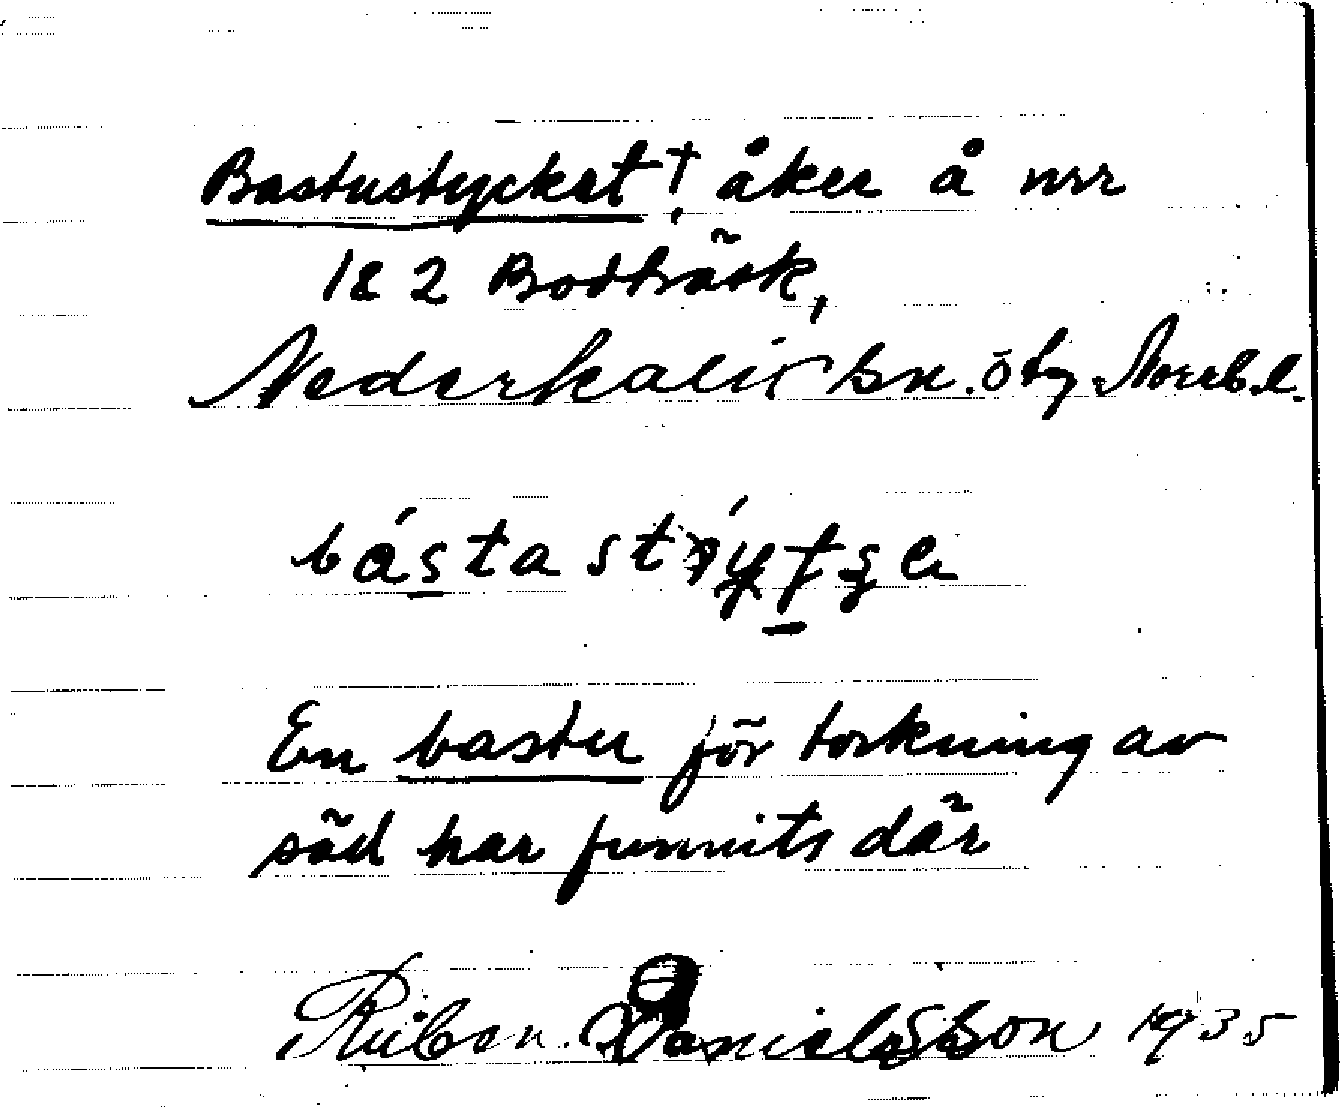 Bastustycket †, åker å nrr
1 & 2 Bodträsk,
Nederkalix sn. ö tg Norrb.l.
bástastýtse
En bastu för torkning av
säd har funnits där
Ruben Danielsson 1935